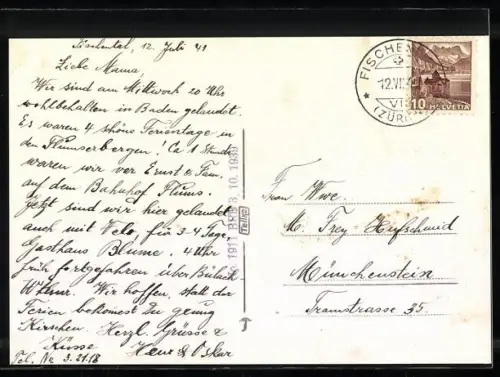 Fischental, 12. Juli 41
Liebe Mama,
Wir sind am Mittwoch 20 Uhr
wohlbehalten in Baden gelandet.
Es waren 4 schöne Ferientage in
den Flumserbergen! Ca 1 Stunde
waren wir vor Ernst & Fam.
auf dem Bahnhof Flums.
Jetzt sind wir hier gelandet
auch mit Velo, für 3-4 Tage
Gasthaus Blume. 4 Uhr
früh fortgefahren über Bülach-
W'thur. Wir hoffen, statt der
Ferien bekomest Du genug
Kirschen. Herzl. Grüsse &
Küsse
& Oskar
Tel. No 3.21.18
1917 BRB 3. 10. 1939
FISCHEN
12.VII.
(ZÜRI
10 HELVETIA
Frau Wwe.
M. Frey-Hufschmid
Münchenstein
Tramstrasse 35.